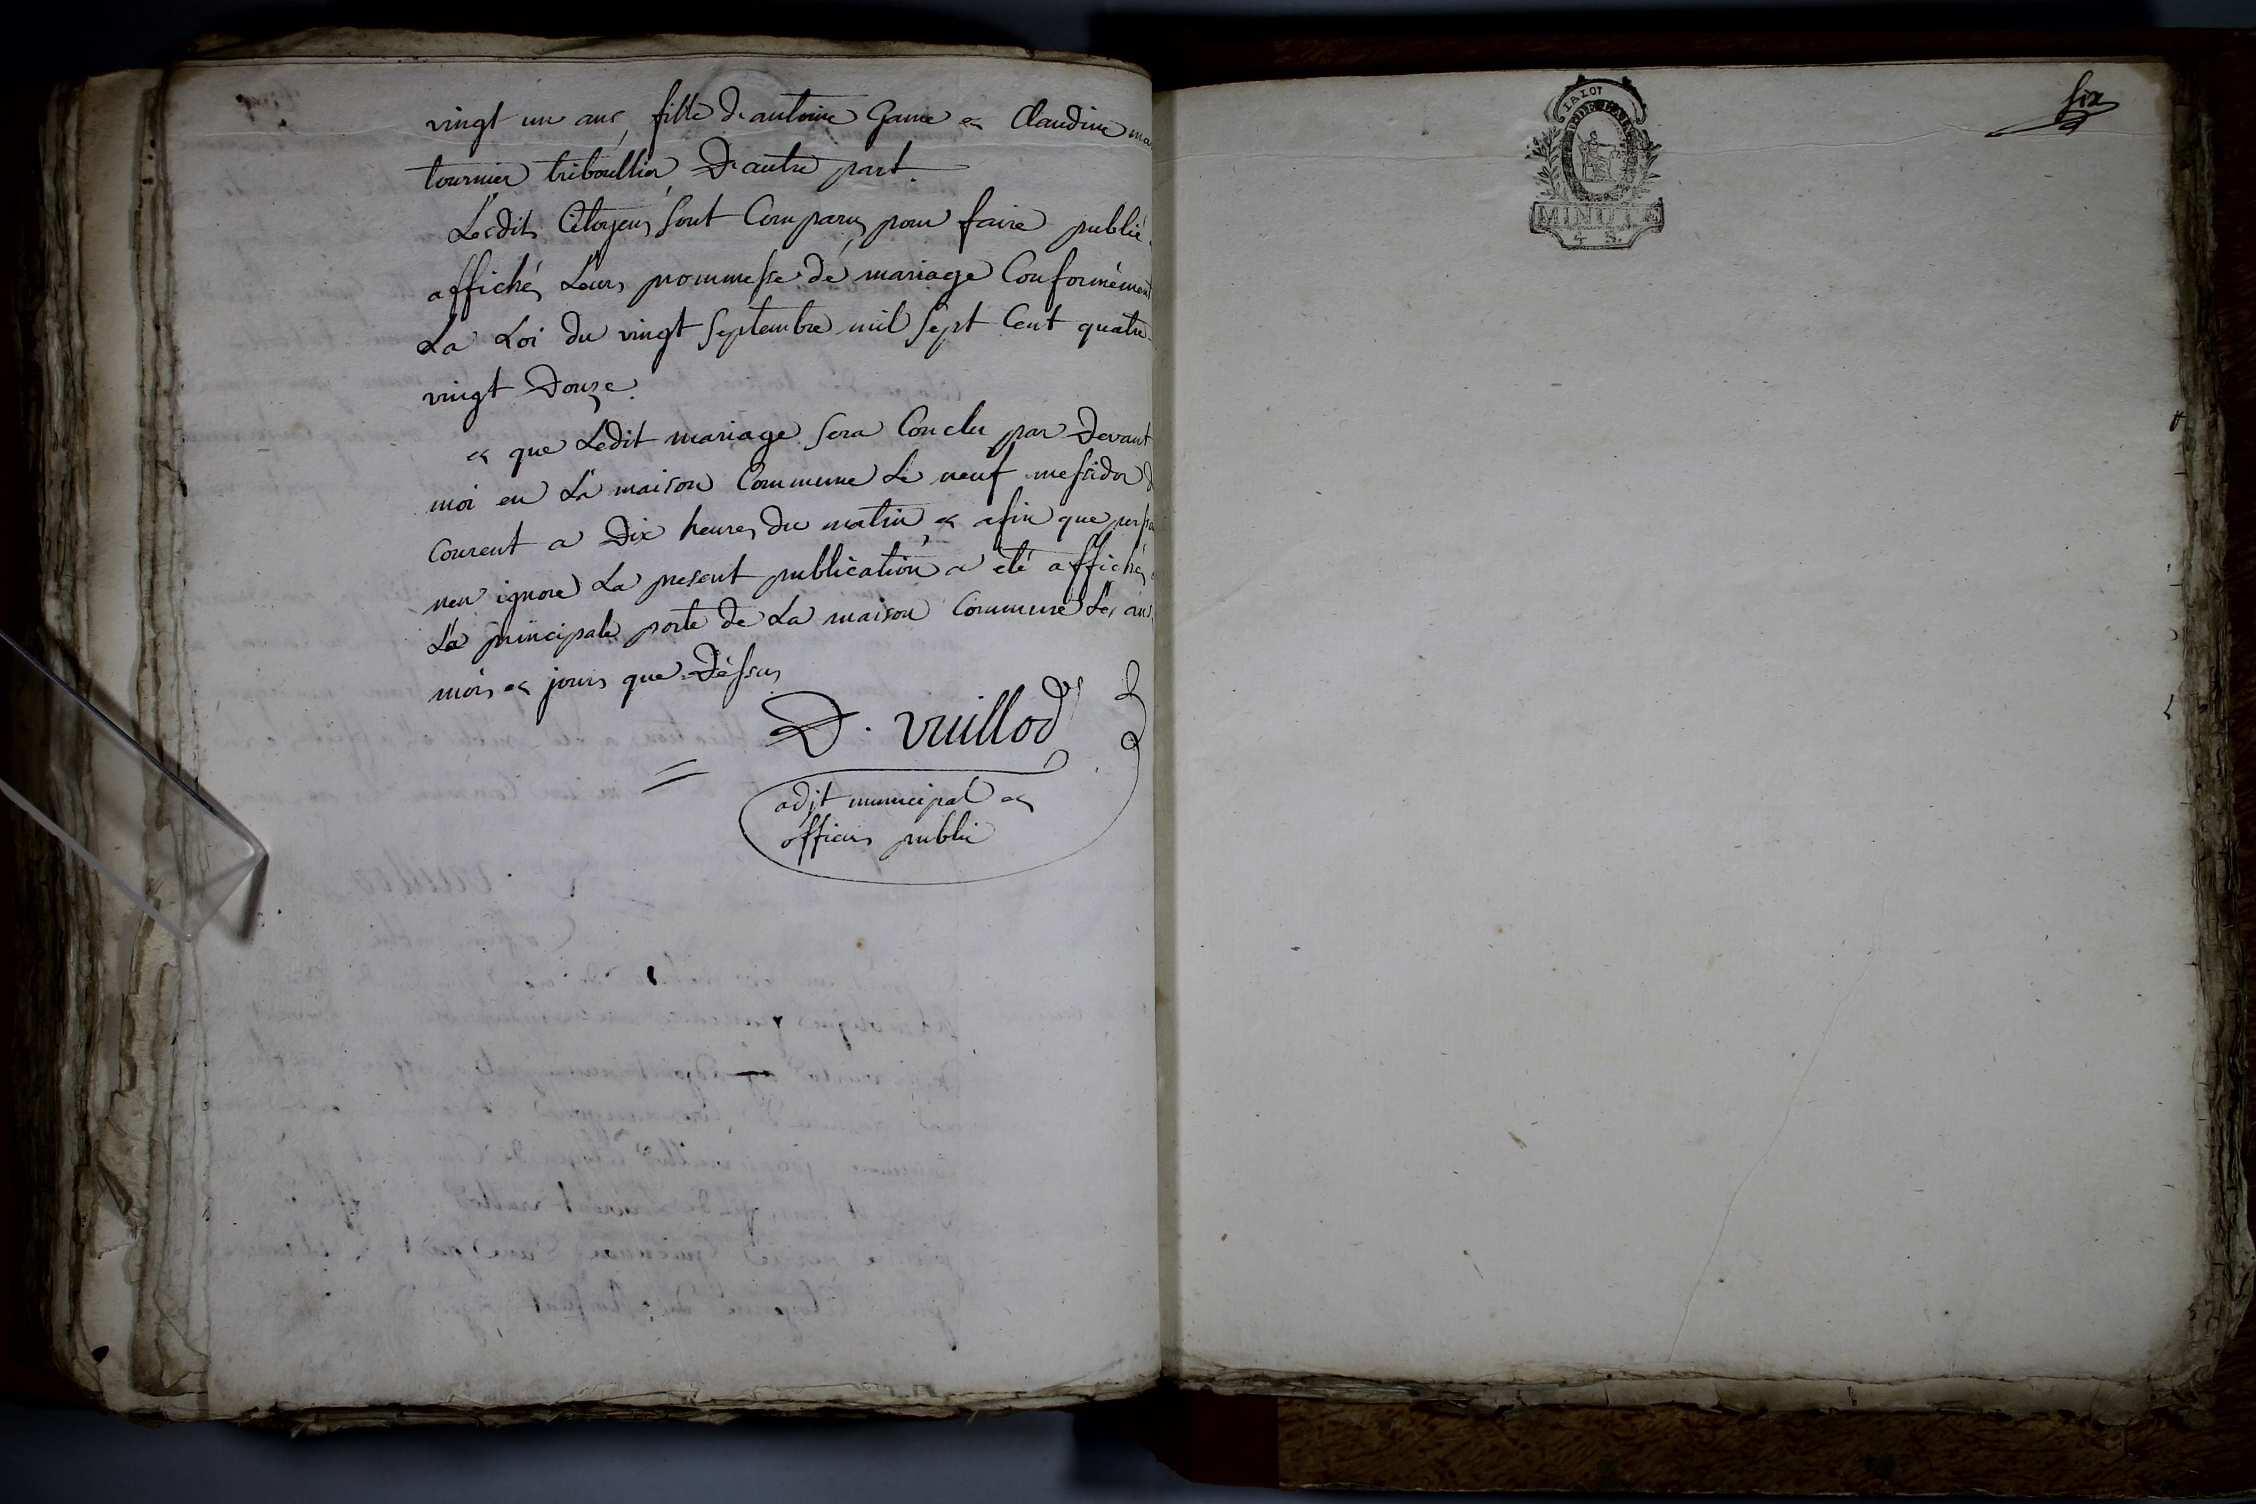 vingt un ans, fille d'antoine Game et Claudine ma
tournier triboullier, D'autre part.
Lesdits Citoyens sont Comparus pour faire publié
affichés Leurs prommesse de mariage Conformément
La Loi du vingt septembre mil sept Cent quatre
vingt Douze.
et que Ledit mariage sera Conclu par Devant
moi en La maison Commune Le neuf messidor
Courent a Dix heures du matin, et afin que
nen ignore La present publication a eté affichés
La principale porte de La maison Commune Les an
mois et jours que Dessus
D. vuillod
adjt municipal et
officier public
six
MINUTE
4 S.